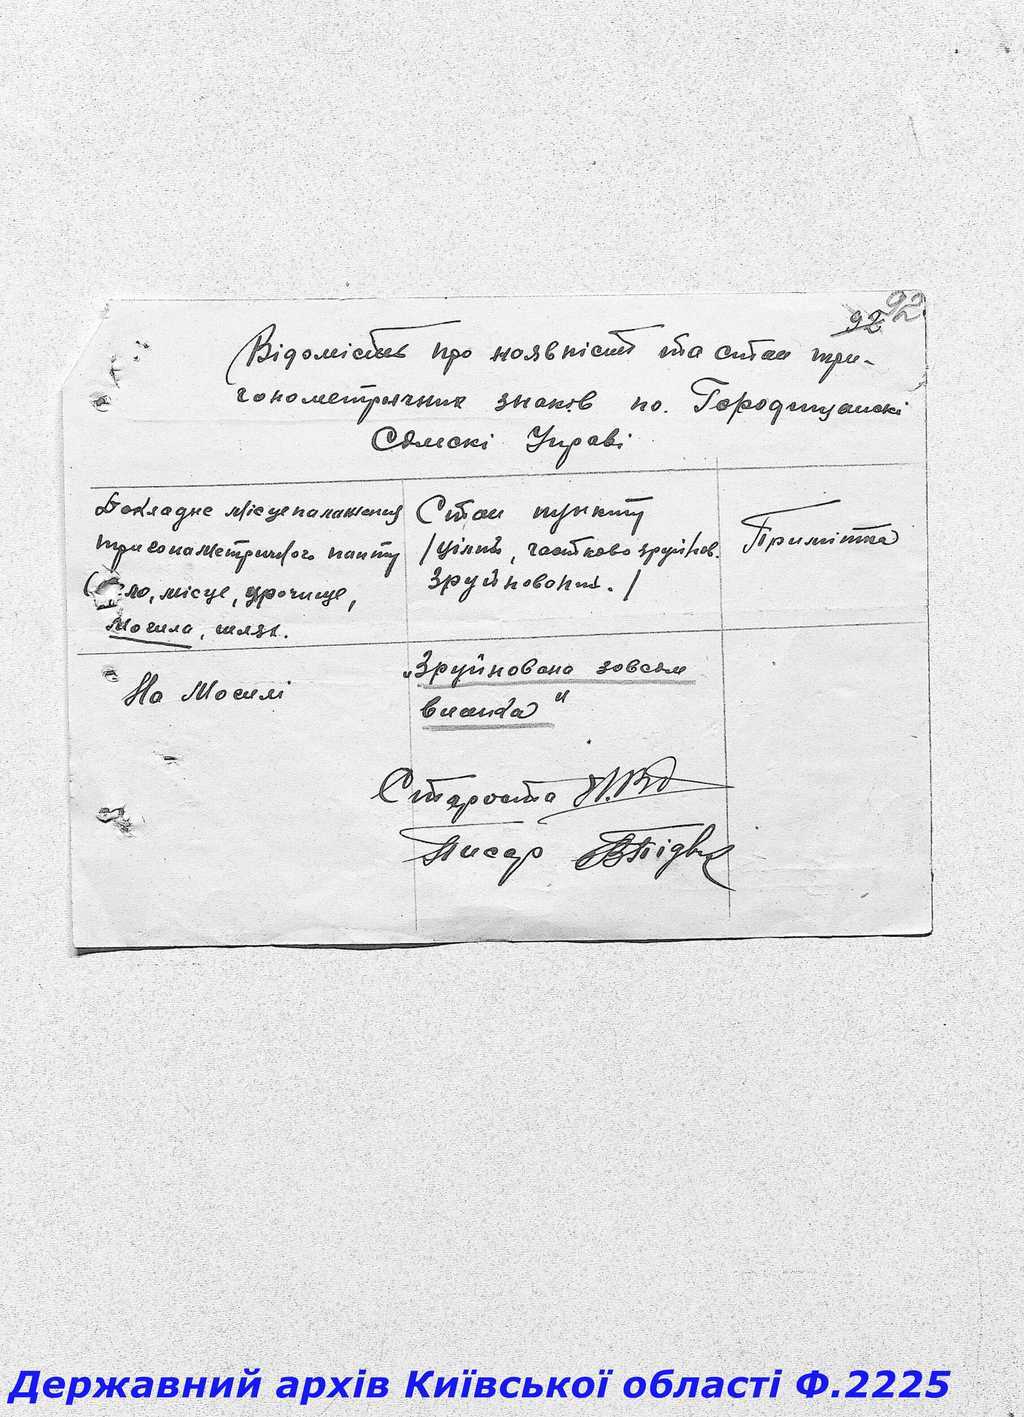 92 92
Відомість про наявність та стан три-
гонометричних знаків по. Городищанскі
Сільскі Управі
Докладне місцеположення
тригонометричного пункту
(село, місце, урочище,
могила, шлях.
Стан пункту
/цілий, частково зруйнов.
зруйнований./
Примітка
На Могилі
„Зруйнована зовсем
вишка"
Староста
Писар
Державний архів Київської області Ф.2225